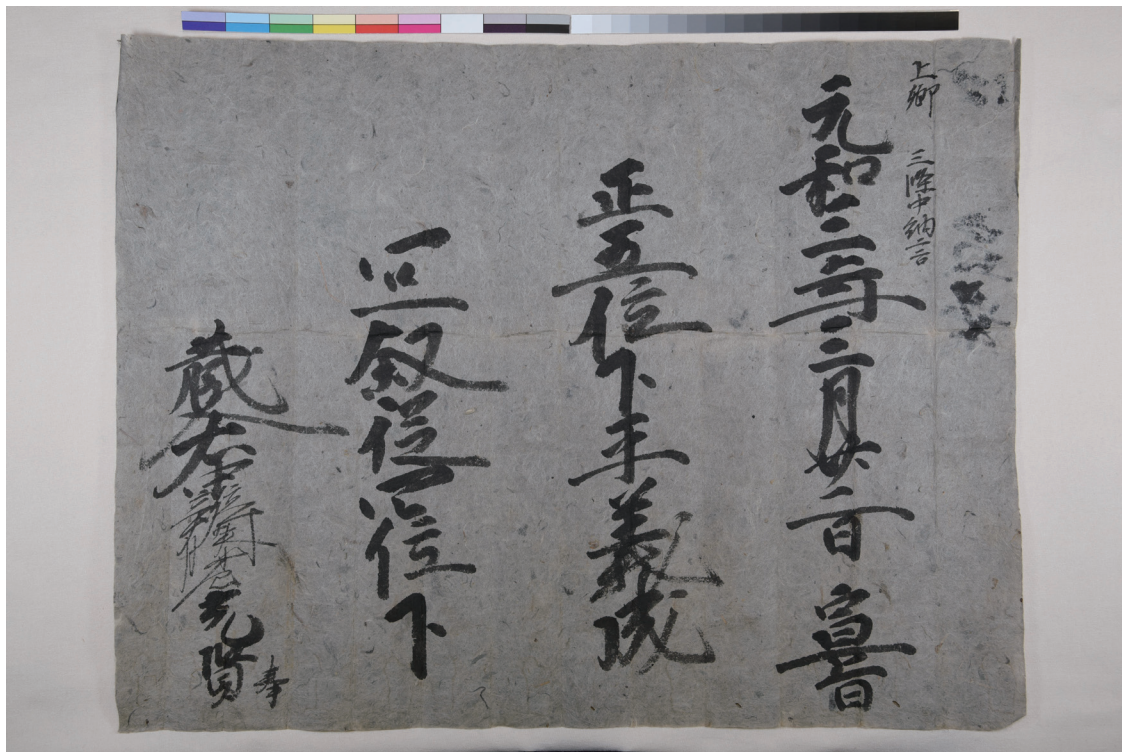 上卿　三條中納言
元和三年三月廿二日　宣旨
正五位下平義成
宜叙従四位下
蔵人右中辨藤原光賢奉